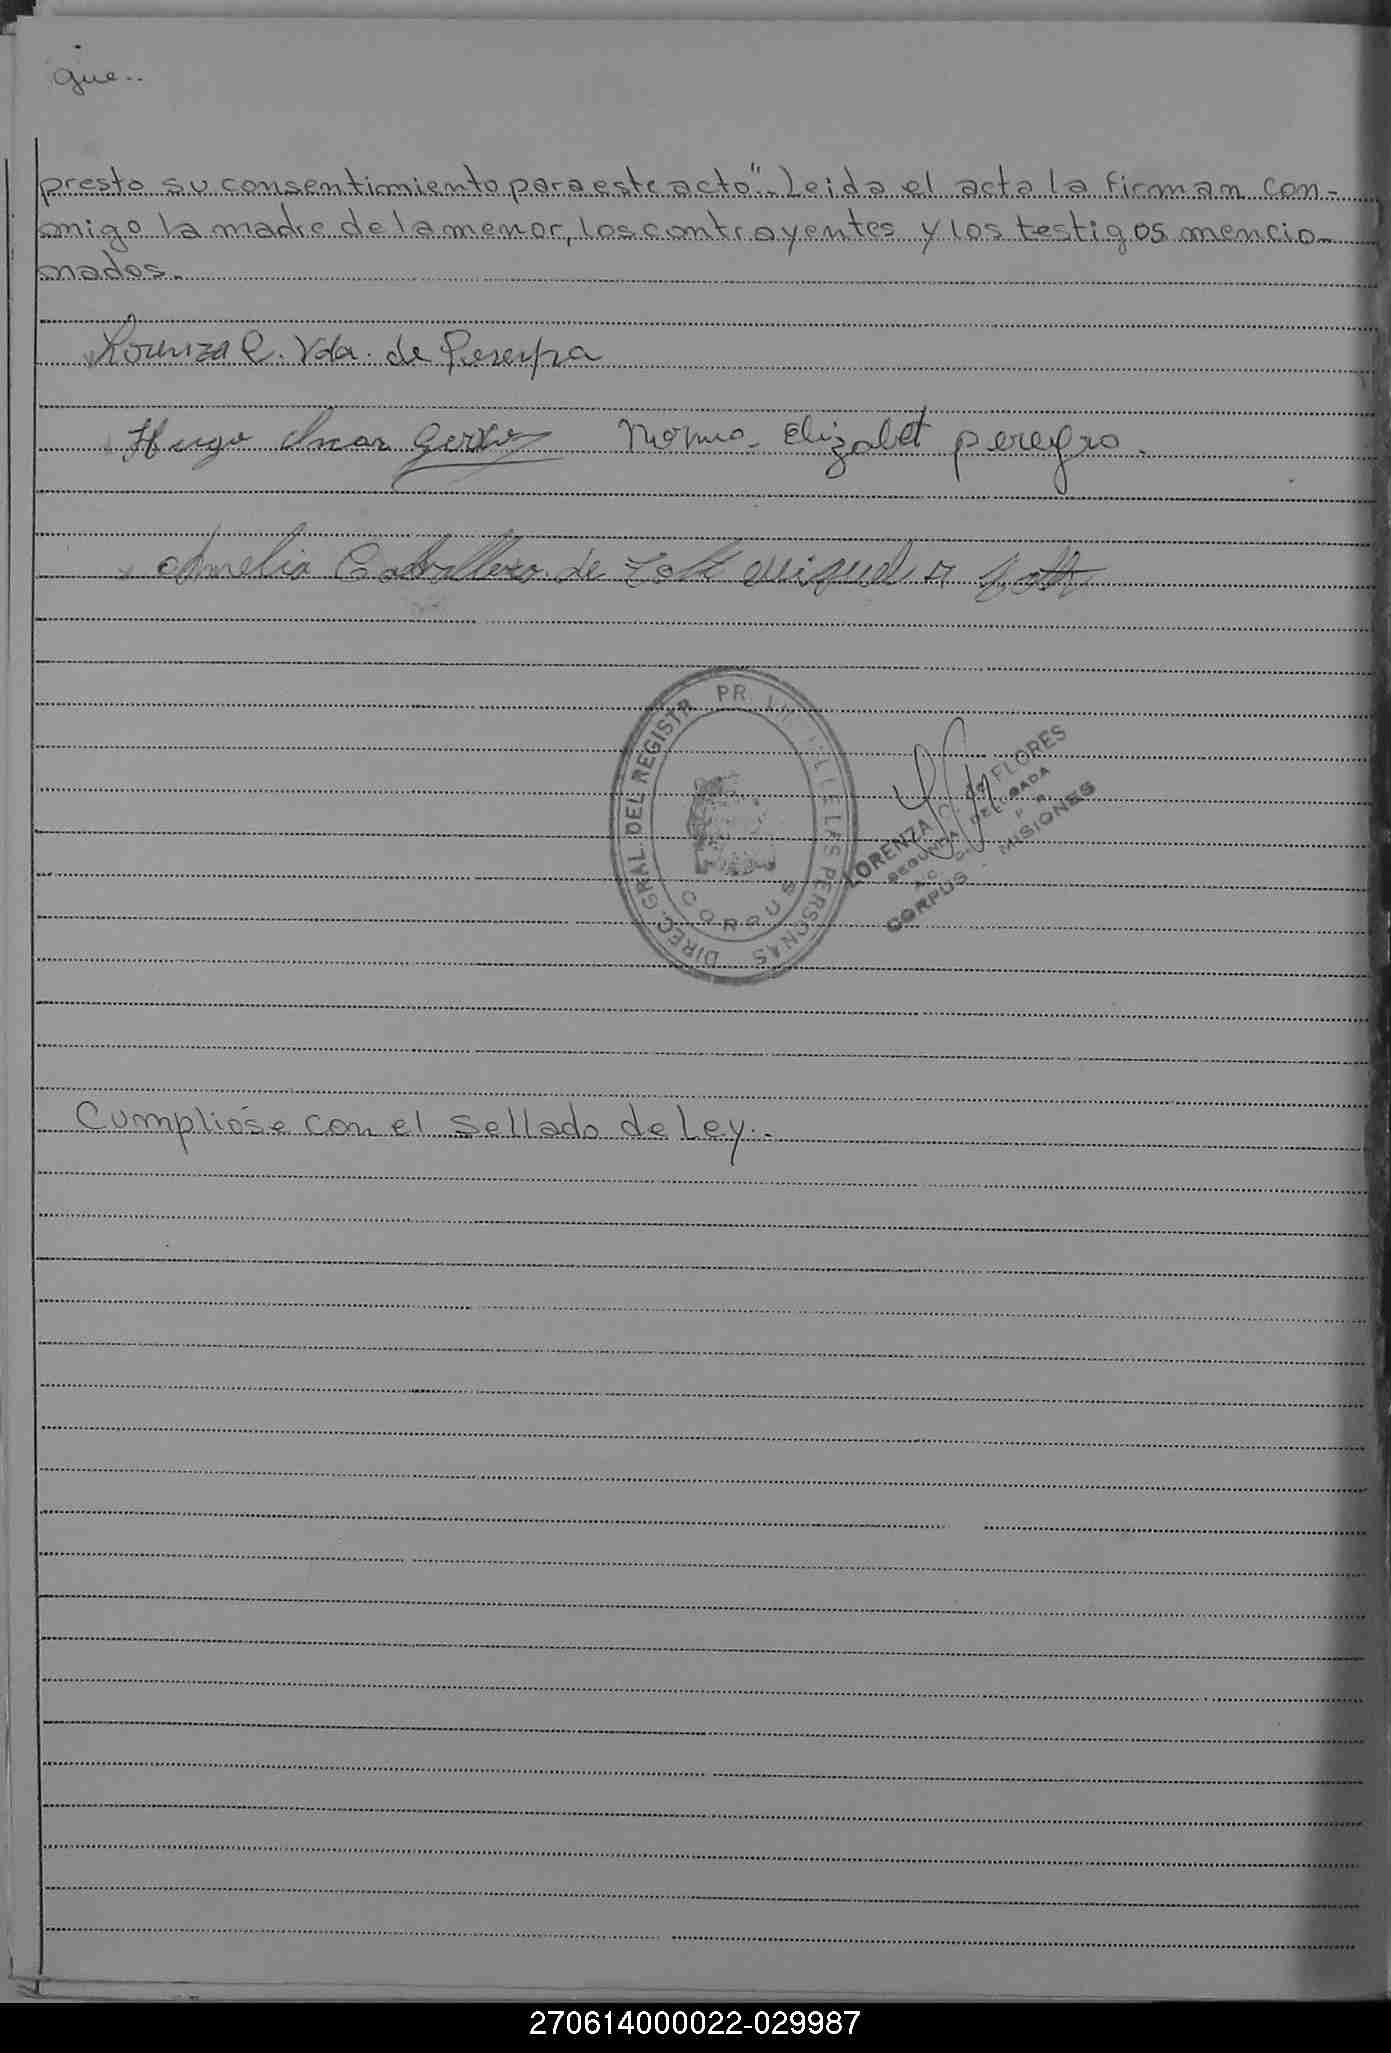 gue..
presto su consentimiento para este acto".. Leida el acta la firman con-
migo la madre de la menor, los contrayentes y los testigos mencio-
nados.
Lorenza C. Vda. de Pereyra
Hugo Omar
Norma Elizabet pereyra.
Amelia Caballero de
Miguel A
DIREC. GRAL. DEL REGISTR PR LAS PERSONAS
CORPUS
LORENZA FLORES
SEGUNDA
CORPUS - MISIONES
Cumplióse con el sellado de Ley..
270614000022-029987